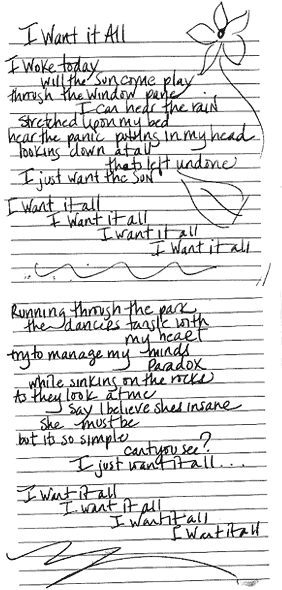 I Want it All
I Woke today
will the sun come play
through the window pane
I can hear the rain
stretched upon my bed
hear the panic in my head
looking down at all
thats left undone
I just want the sun
I want it all
I want it all
I want it all
I want it all
Running through the park
the dancers tangle with
my heart
try to manage my minds
Paradox
while sinking on the rocks
As they look at me
Say I believe shes insane
She must be
but its so simple
cant you see?
I just want it all....
I want it all
I want it all
I want it all
I want it all